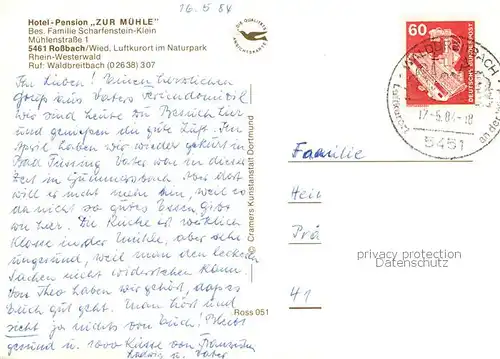 16.5.84
Hotel-Pension „ZUR MÜHLE"
Bes. Familie Scharfenstein-Klein
Mühlenstraße 1
5461 Roßbach/Wied, Luftkurort im Naturpark
Rhein-Westerwald
Ruf: Waldbreitbach (02638) 307
DIE QUALITÄTS
ANSICHTSKARTE
Ihr Lieben! Einen herzlichen
Gruß aus Vaters Feriendomizil
wir sind heute zu Besuch hier
und genießen die gute Luft. Im
April haben wir wieder gekurt in
Bad Füssing. Vater war in dieser
Zeit in Gummersbach. Aber dort
will er nicht mehr hin, weil es
da nicht so gutes Essen gibt
wie hier. Die Küche ist wirklich
Klasse in der Mühle, aber sehr
ungesund, weil man den leckeren
Sachen nicht widerstehen kann.
Von Theo haben wir gehört, daß es
Euch gut geht. Man hört und
sieht ja nichts von Euch! Bleibt
gesund u. 1000 Küsse von
Ludwig u. Vater
© Cramers Kunstanstalt Dortmund
Ross 051
60
DEUTSCHE BUNDESPOST
17.-5.84-18
5451
Luftkurort
an der
Familie
Heit
Prä
41
privacy protection
Datenschutz